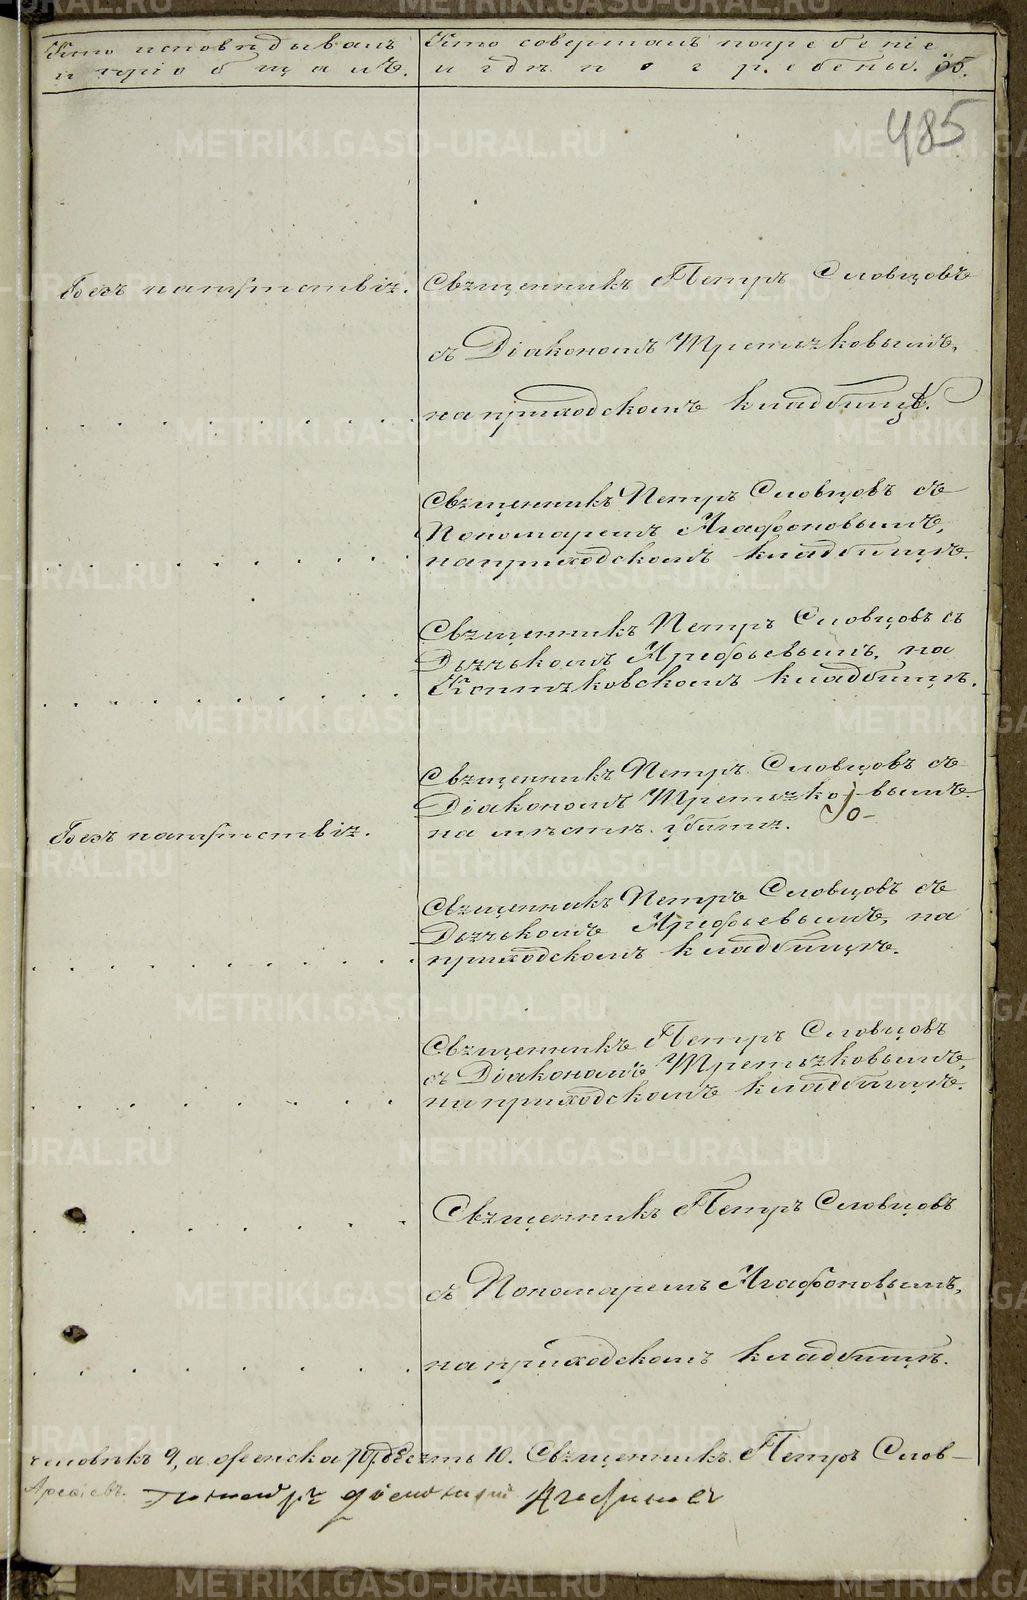 Кто исповѣдывалъ
и пріобщалъ.
Кто совершалъ погребеніе
и гдѣ погребены.
485
Безъ напутствія.
Священникъ Петръ Словцовъ
съ Діакономъ Третьяковымъ,
на приходскомъ кладбищѣ.
Священникъ Петръ Словцовъ съ
Пономаремъ Агафоновымъ,
на приходскомъ кладбищѣ.
Священникъ Петръ Словцовъ съ
Дьячькомъ Арефьевымъ, на
Коптяковскомъ кладбищѣ.
Безъ напутствія.
Священникъ Петръ Словцовъ съ
Діакономъ Третьяковымъ
на мѣстѣ убитія.
Священникъ Петръ Словцовъ съ
Дьячькомъ Арефьевымъ, на
приходскомъ кладбищѣ.
Священникъ Петръ Словцовъ
съ Діакономъ Третьяковымъ,
на приходскомъ кладбищѣ.
Священникъ Петръ Словцовъ
съ Пономаремъ Агафоновымъ,
на приходскомъ кладбищѣ.
человѣкъ 9, а женска 10. Священникъ Петръ Слов-
Арефьевъ. Пономарь Агафоновъ
METRIKI.GASO-URAL.RU